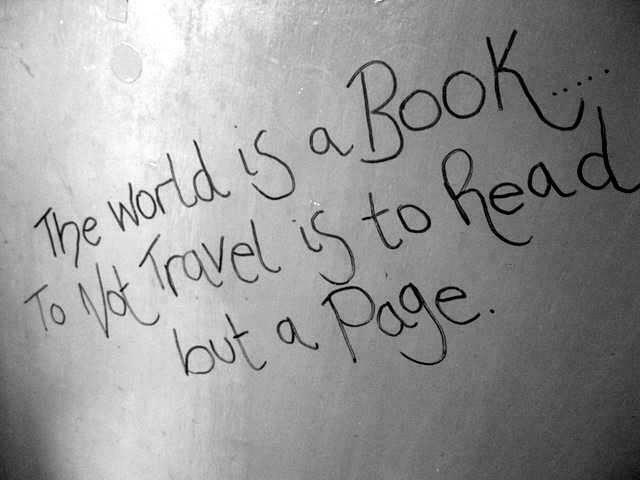 The World is a Book.....
To Not Travel is to Read
but a Page.